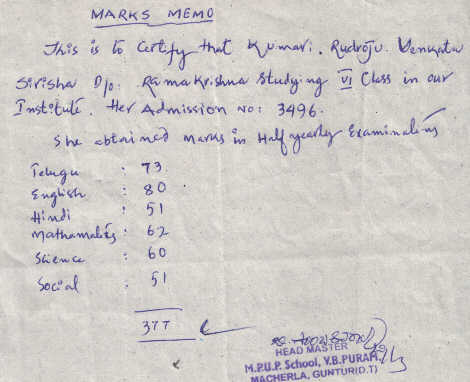 MARKS MEMO
This is to Certify that Kumari. Rudroju. Venkata
Sirisha D/o. Ramakrishna Studying VI Class in our
Institute. Her Admission No: 3496.
She obtained marks in Half yearly Examinations
Telugu : 73
English : 80
Hindi : 51
Mathamatics : 62
Science : 60
Social : 51
377
HEAD MASTER
M.P.U.P. School, Y.B.PURAM
MACHERLA, GUNTUR(D.T)